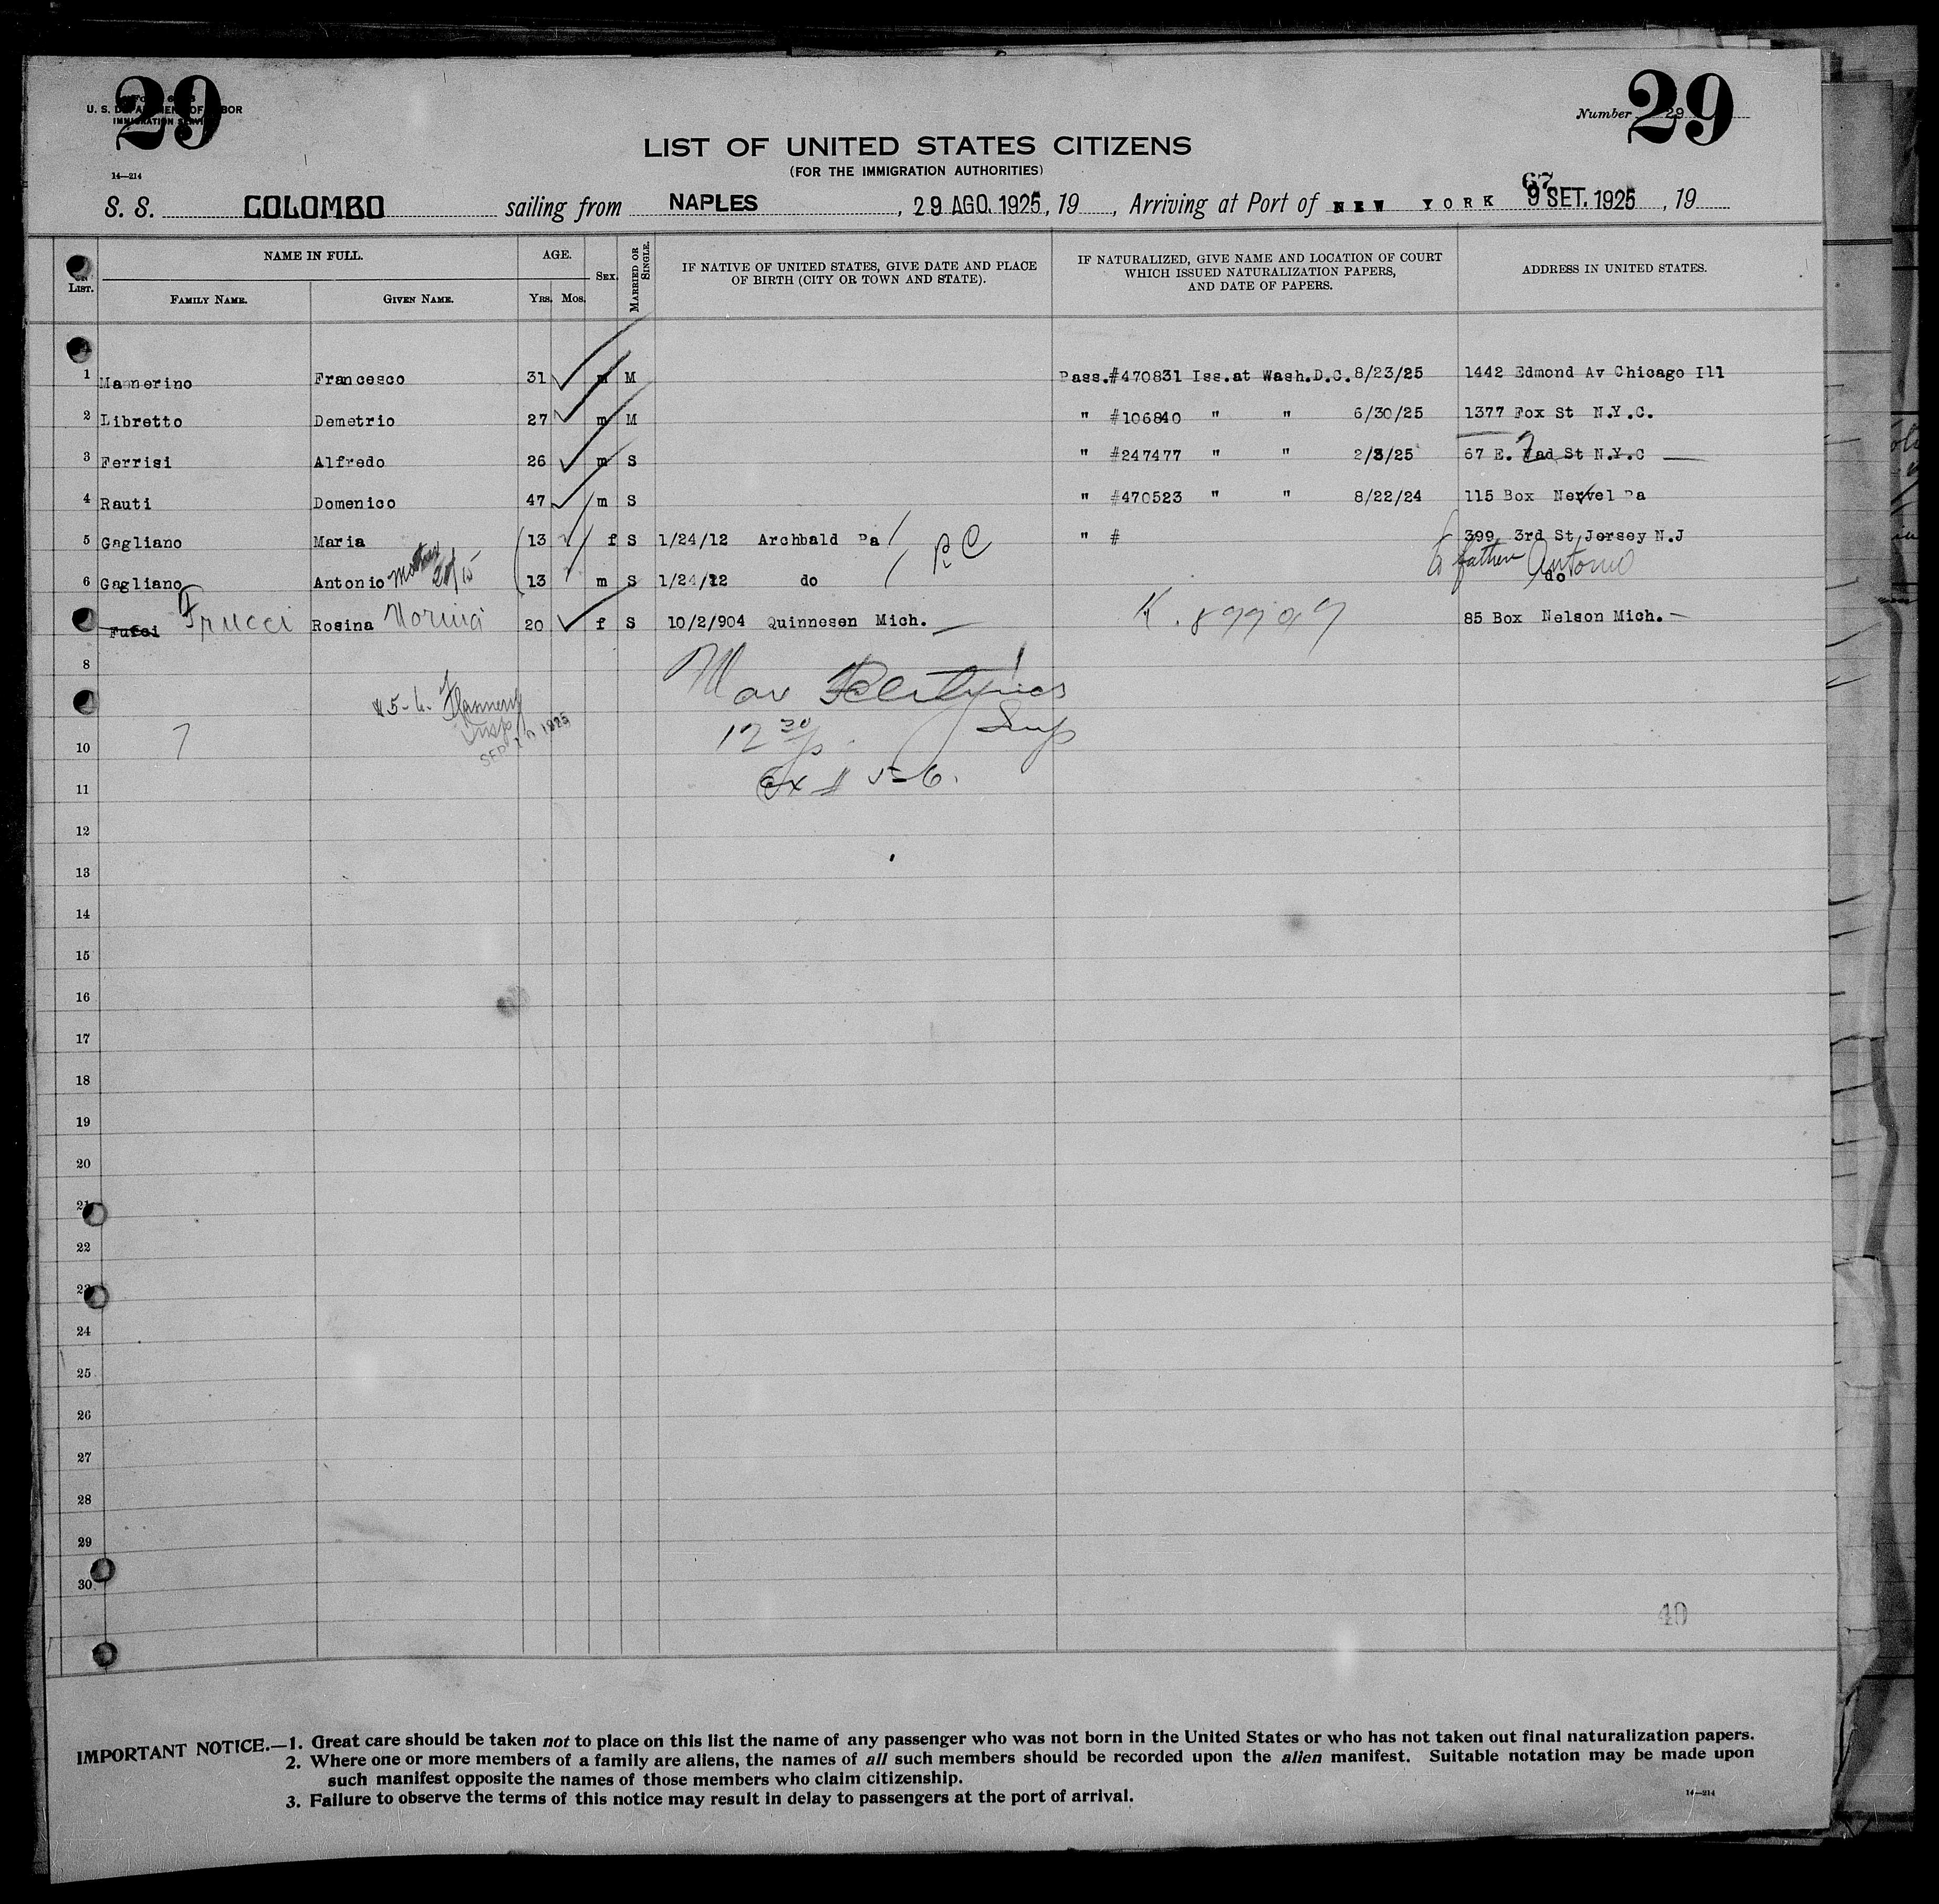 29
U. S. DEPARTMENT OF LABOR
IMMIGRATION SERVICE
14—214
Number 29
29
LIST OF UNITED STATES CITIZENS
(FOR THE IMMIGRATION AUTHORITIES)
67
S. S. COLOMBO sailing from NAPLES, 29 AGO. 1925, 19, Arriving at Port of NEW YORK 9 SET. 1925, 19
LIST.
NAME IN FULL.
FAMILY NAME. GIVEN NAME.
AGE.
YRS. MOS.
SEX.
MARRIED OR SINGLE.
IF NATIVE OF UNITED STATES, GIVE DATE AND PLACE
OF BIRTH (CITY OR TOWN AND STATE).
IF NATURALIZED, GIVE NAME AND LOCATION OF COURT
WHICH ISSUED NATURALIZATION PAPERS,
AND DATE OF PAPERS.
ADDRESS IN UNITED STATES.
1 Mannerino Francesco 31 m M Pass.#470831 Iss.at Wash.D.C. 8/23/25 1442 Edmond Av Chicago Ill
2 Libretto Demetrio 27 m M " #106840 " " 6/30/25 1377 Fox St N.Y.C.
3 Ferrisi Alfredo 26 m S " #247477 " " 2/3/25 67 E. 2ad St N.Y.C
4 Rauti Domenico 47 m S " #470523 " " 8/22/24 115 Box Nervel Pa
5 Gagliano Maria 13 f S 1/24/12 Archbald Pa " # 399 3rd St Jersey N.J
RC
to father Antonio
6 Gagliano Antonio 13 m S 1/24/12 do do
Fucci Frucci Rosina Norina 20 f S 10/2/904 Quinnesen Mich. 85 Box Nelson Mich.
8
5-6. Flannery
Insp
1925
12 30/p
Ex # 5-6.
7
10
11
12
13
14
15
16
17
18
19
20
21
22
23
24
25
26
27
28
29
30
40
IMPORTANT NOTICE.—1. Great care should be taken not to place on this list the name of any passenger who was not born in the United States or who has not taken out final naturalization papers.
2. Where one or more members of a family are aliens, the names of all such members should be recorded upon the alien manifest. Suitable notation may be made upon
such manifest opposite the names of those members who claim citizenship.
3. Failure to observe the terms of this notice may result in delay to passengers at the port of arrival.
14—214